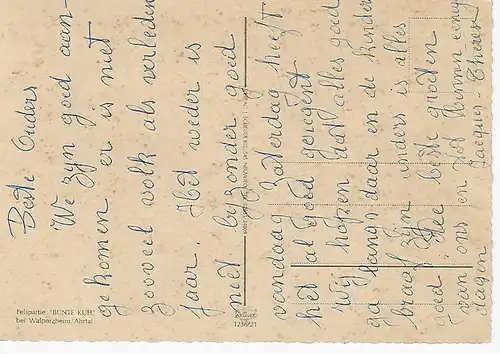 Beste Ouders
We zyn goed aan-
gekomen er is niet
zooveel volk als verleden
jaar. Het weder is
niet byzonder goed
vandaag Zaterdag heeft
het al goed geregent
Wij hopen dat alles goed
ga langs daar en de kinders
braaf zijn anders is alles
goed. Vele beste groeten
van ons en tot binnen eenige
dagen Jacques - Therese
Felspartie "BUNTE KUH"
bei Walporzheim/Ahrtal
1236/21